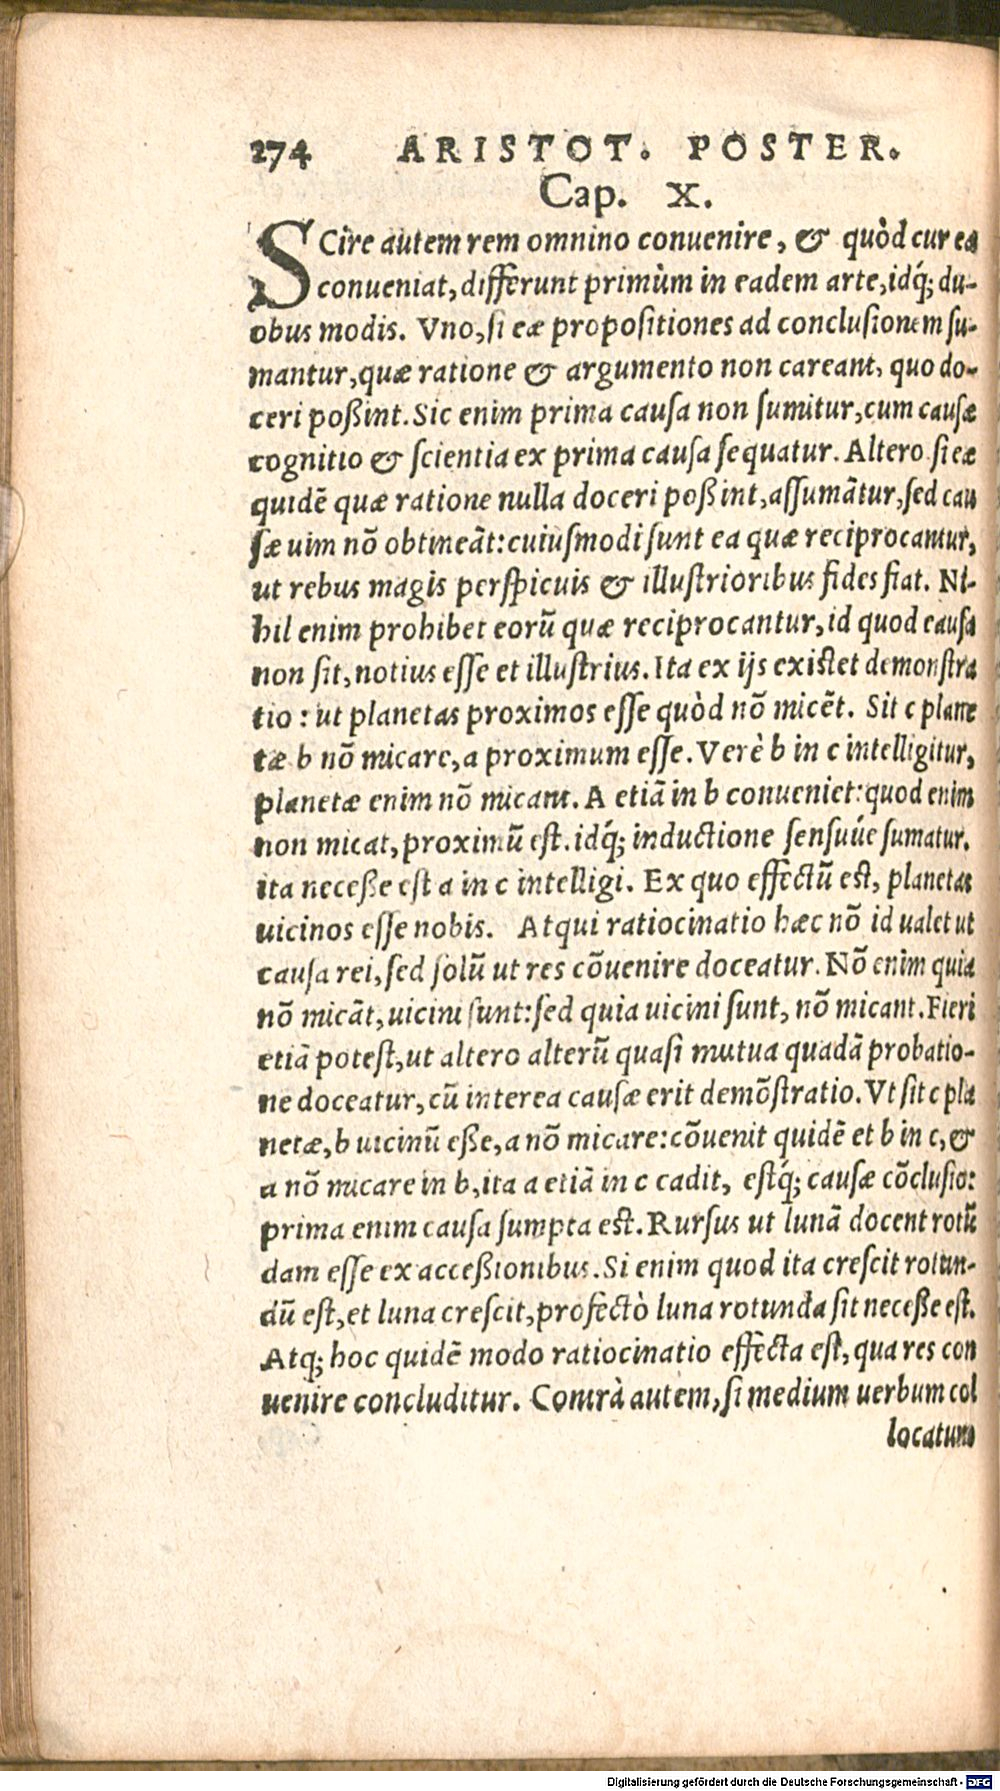 274 ARISTOT. POSTER.
Cap. X.
SCire autem rem omnino conuenire, & quòd cur ea
conueniat, differunt primùm in eadem arte, idq́; du-
obus modis. Vno, si eæ propositiones ad conclusionem su-
mantur, quæ ratione & argumento non careant, quo do-
ceri poßint. Sic enim prima causa non sumitur, cum causæ
cognitio & scientia ex prima causa sequatur. Altero si eæ
quidē quæ ratione nulla doceri poßint, assumātur, sed cau
sæ uim nō obtineāt: cuiusmodi sunt ea quæ reciprocantur,
ut rebus magis perspicuis & illustrioribus fides fiat. Ni-
hil enim prohibet eorū quæ reciprocantur, id quod causa
non sit, notius esse et illustrius. Ita ex ijs existet demonstra
tio: ut planetas proximos esse quòd nō micēt. Sit c plane
tæ b nō micare, a proximum esse. Verè b in c intelligitur,
planetæ enim nō micant. A etiā in b conueniet: quod enim
non micat, proximū est. idq́; inductione sensuúe sumatur.
ita neceße est a in c intelligi. Ex quo effectū est, planetas
uicinos esse nobis. Atqui ratiocinatio hæc nō id ualet ut
causa rei, sed solū ut res cōuenire doceatur. Nō enim quia
nō micāt, uicini sunt: sed quia uicini sunt, nō micant. Fieri
etiā potest, ut altero alterū quasi mutua quadā probatio-
ne doceatur, cū interea causæ erit demōstratio. Vt sit c pla
netæ, b uicinū eße, a nō micare: cōuenit quidē et b in c, &
a nō micare in b, ita a etiā in c cadit, estq́; causæ cōclusio:
prima enim causa sumpta est. Rursus ut lunā docent rotū
dam esse ex acceßionibus. Si enim quod ita crescit rotun-
dū est, et luna crescit, profectò luna rotunda sit neceße est.
Atq; hoc quidē modo ratiocinatio effecta est, qua res con
uenire concluditur. Contrà autem, si medium uerbum col
locatum
Digitalisierung gefördert durch die Deutsche Forschungsgemeinschaft - DFG